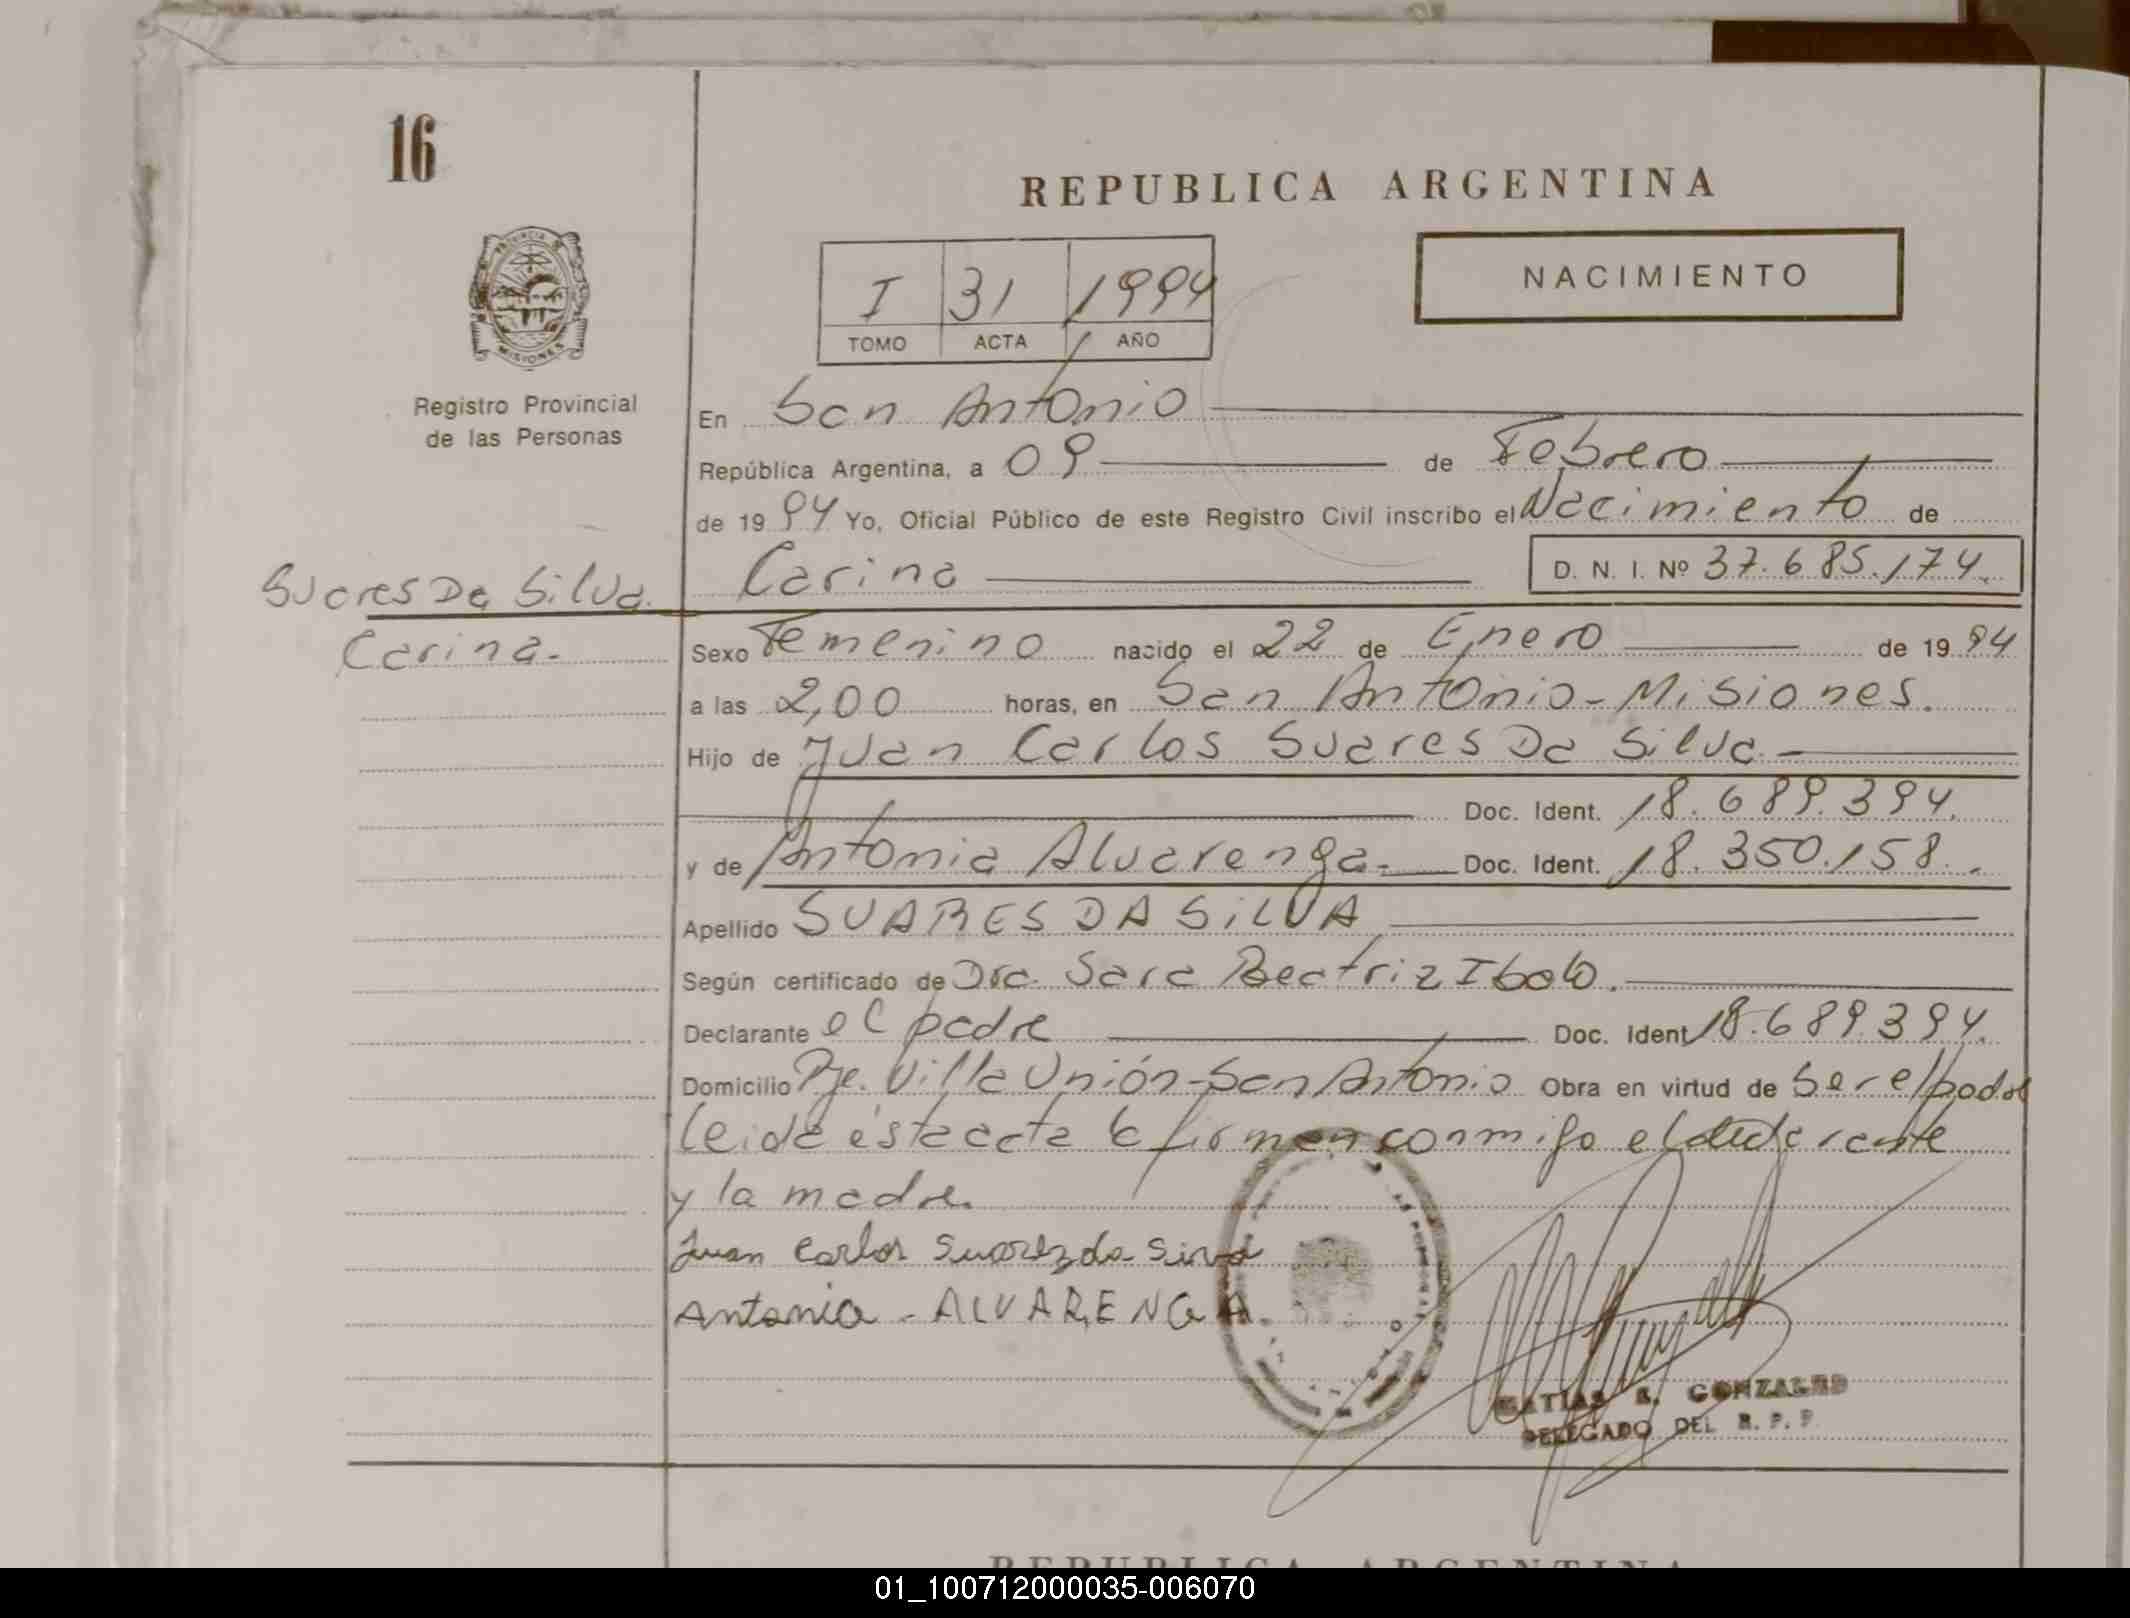 16
REPUBLICA ARGENTINA
NACIMIENTO
I 31 1994
TOMO ACTA AÑO
PROVINCIA DE
MISIONES
Registro Provincial
de las Personas
En San Antonio
República Argentina, a 09 de Febrero
de 1994 Yo, Oficial Público de este Registro Civil inscribo el Nacimiento de
Carina D. N. I. Nº 37.685.174.
Suares Da Silva.
Carina.-
Sexo Femenino nacido el 22 de Enero de 1994
a las 2,00 horas, en San Antonio - Misiones.
Hijo de Juan Carlos Suares Da Silva.-
Doc. Ident. 18.689.394.
y de Antonia Alvarenga.- Doc. Ident. 18.350.158.-
Apellido SUARES DA SILVA
Según certificado de Dra. Sara Beatriz
Declarante el padre Doc. Ident 18.689.394.
Domicilio Pje. Villa Unión - San Antonio Obra en virtud de Ser el padre
Leida ésta acta la firman conmigo el declarante
y la madre.
Juan Carlos Suarez da Siva
Antonia - ALVARENGA.
MATIAS GONZALEZ
DELEGADO DEL R. P. P.
REPUBLICA ARGENTINA
01_100712000035-006070